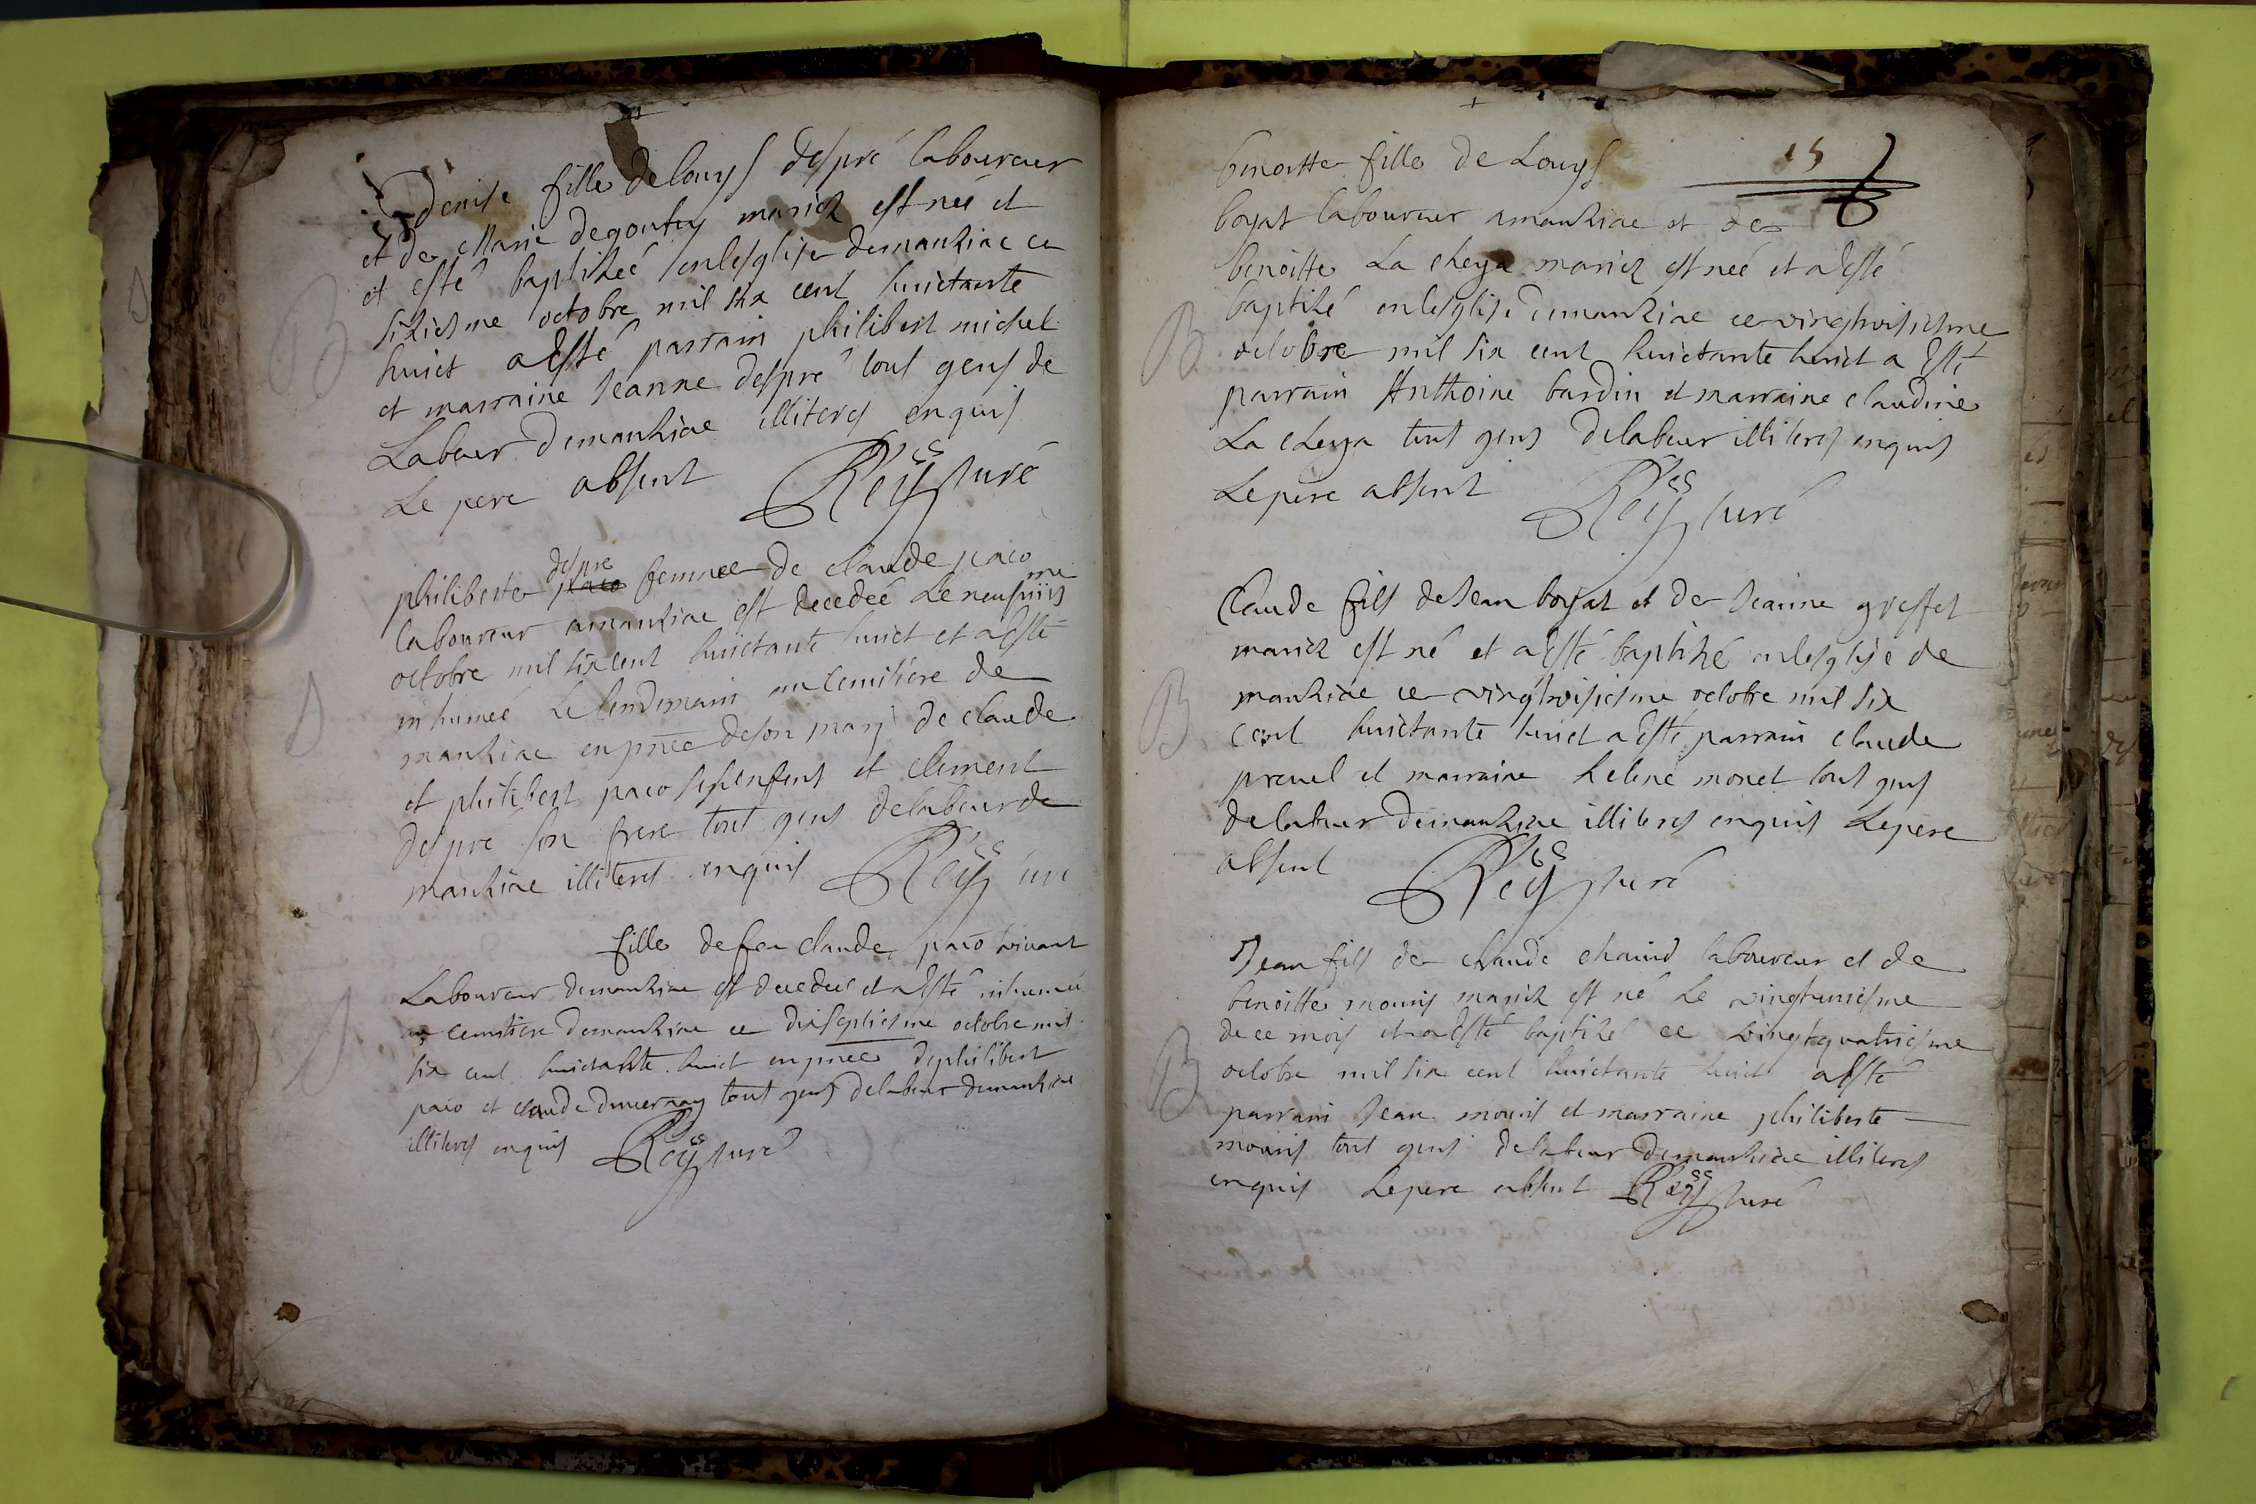 Denise fille de Louys despré laboureur
et de Marie degoutey mariez est neé et
et esté baptizeé en lesglise demanziac ce
sixiesme octobre mil six cent huictante
huict a esté parrain philibert michel
et marraine Jeanne despré tout gens de
Labeur demanziac illiteres enquis
Le pere absent Reÿss curé
despre
philiberte paco femme de claude paco
laboureur amanziac est decedeé Le neufviesme
octobre mil six cent huictante huict et a esté
inhumeé Le lendemain au cemitiere de
manziac en pnce deson mary de claude
et philibert paco ses enfens et clement
despré son frere tout gens delabeur de
manziac illiteres enquis Reÿss curé
fille de feu claude paco vivant
Laboureur demanziac est decedeé et a esté inhumeé
au cemitiere demanziac ce dixseptiesme octobre mil
six cent huictante huict en pnce dephilibert
paco et claude duvernay tout gens delabeur demanziac
illiteres enquis Reÿss curé
15
benoitte fille de Louys
boyat laboureur amanziac et de
benoitte La cheya mariez est neé et a esté
baptizé en lesglise demanziac ce vingtroisiesme
octobre mil six cent huictante huict a esté
parrain Anthoine bardin et marraine claudine
La cheya tout gens delabeur illiteres enquis
Le pere absent Reÿss curé
B
Claude fils de Jean boyat et de Jeanne greffet
mariez est né et a esté baptizé en lesglise de
manziac ce vingtroisiesme octobre mil six
cent huictante huict a esté parrain claude
pravel et marraine helene monet tout gens
delabeur demanziac illiteres enquis Le pere
absent Reÿss curé
B
Jean fils de claude chaind laboureur et de
benoitte mouris mariez est né Le vingtuniesme
de ce mois et a esté baptizé ce vingtquatriesme
octobre mil six cent huictante huict a esté
parrain Jean mouris et marraine philiberte
mouris tout gens delabeur demanziac illiteres
enquis Le pere absent Reÿss curé
B